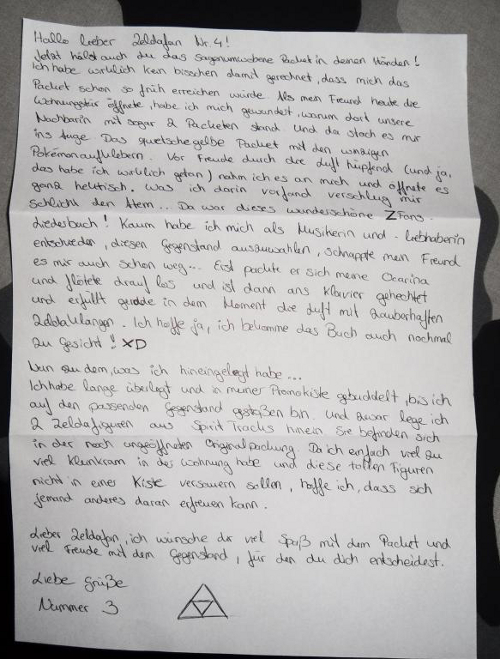 Hallo lieber Zeldafan Nr. 4!
Jetzt hälst auch du das sagenumwobene Packet in deinen Händen!
Ich habe wirklich kein bisschen damit gerechnet, dass mich das
Packet schon so früh erreichen würde. Als mein Freund heute die
Wohnungstür öffnete, habe ich mich gewundert, warum dort unsere
Nachbarin mit sogar 2 Packeten stand. Und da stach es mir
ins Auge. Das quietschegelbe Packet mit den winzigen
Pokémonaufklebern. Vor Freude durch die Luft hüpfend (und ja,
das habe ich wirklich getan) nahm ich es an mich und öffnete es
ganz hektisch. Was ich darin vorfand verschlug mir
schlicht den Atem... Da war dieses wunderschöne ZFans-
Liederbuch! Kaum habe ich mich als Musikerin und -liebhaberin
entschieden, diesen Gegenstand auszuwählen, schnappte mein Freund
es mir auch schon weg... Erst packte er sich meine Ocarina
und flötete drauf los und ist dann ans Klavier gehechtet
und erfüllt gerade in dem Moment die Luft mit zauberhaften
Zeldaklängen. Ich hoffe ja, ich bekomme das Buch auch nochmal
zu Gesicht! XD
Nun zu dem, was ich hineingelegt habe...
Ich habe lange überlegt und in meiner Promokiste gebuddelt, bis ich
auf den passenden Gegenstand gestoßen bin. Und zwar lege ich
2 Zeldafiguren aus Spirit Tracks hinein. Sie befinden sich
in der noch ungeöffneten Originalpackung. Da ich einfach viel zu
viel Kleinkram in der Wohnung habe und diese tollen Figuren
nicht in einer Kiste versauern sollen, hoffe ich, dass sich
jemand anderes daran erfreuen kann.
Lieber Zeldafan, ich wünsche dir viel Spaß mit dem Packet und
viel Freude mit dem Gegenstand, für den du dich entscheidest.
Liebe Grüße
Nummer 3